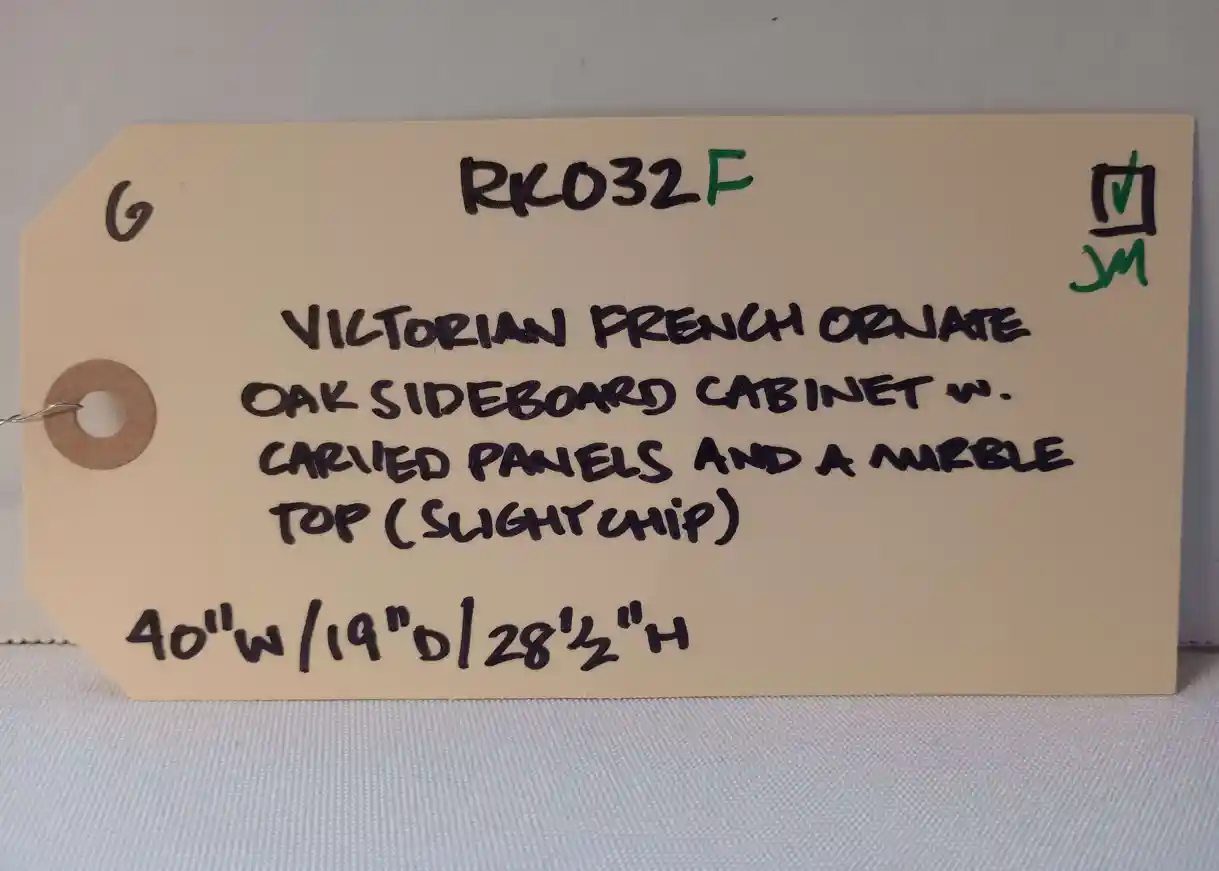 G
RK032F
☑
JM
VICTORIAN FRENCH ORNATE
OAK SIDEBOARD CABINET W.
CARVED PANELS AND A MARBLE
TOP (SLIGHT CHIP)
40"W/19"D/28 1/2"H